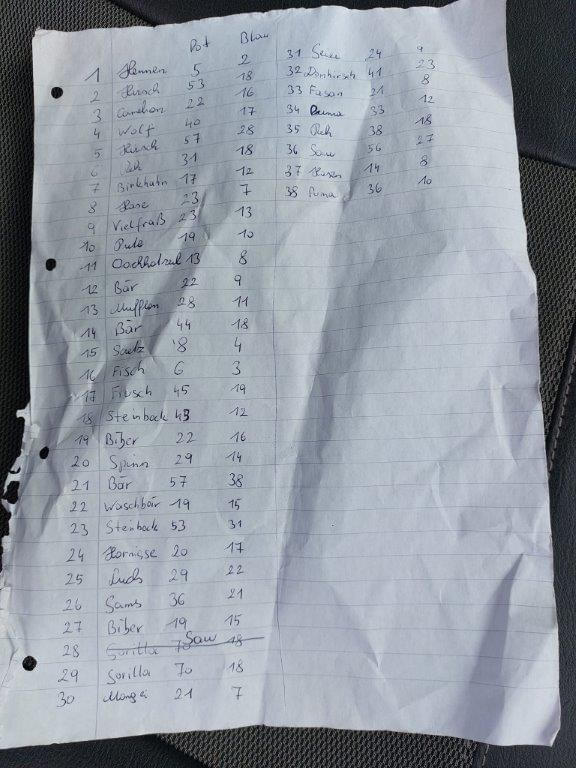 Rot Blau
1 Hennen 5 2
2 Hirsch 53 18
3 22 16
4 Wolf 40 17
5 Hirsch 57 28
6 Reh 31 18
7 Birkhahn 17 12
8 Hase 23 7
9 Vielfraß 23 13
10 Pute 19 10
11 13 8
12 Bär 22 9
13 Mufflon 28 11
14 Bär 44 18
15 8 4
16 Fisch 6 3
17 45 19
18 Steinbock 43 12
19 Biber 22 16
20 Spinn 29 14
21 Bär 57 38
22 Waschbär 19 15
23 Steinbock 53 31
24 Hornisse 20 17
25 Luchs 29 22
26 Gams 36 21
27 Biber 19 15
28 Gorilla 70 Sau 18
29 Gorilla 70 18
30 21 7
31 24 9
32 41 23
33 Fasan 21 8
34 Puma 33 12
35 Reh 38 18
36 Sau 56 27
37 Hasen 14 8
38 Puma 36 10